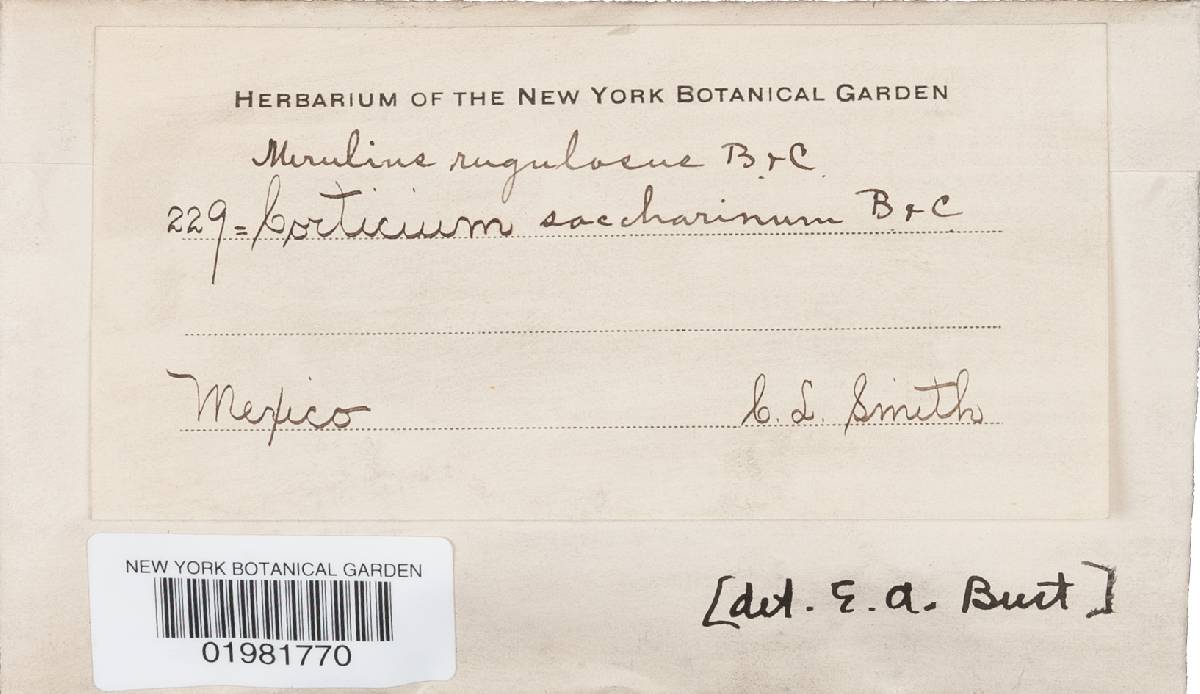 HERBARIUM OF THE NEW YORK BOTANICAL GARDEN
Merulius rugulosus B & C
229 = Corticium saccharinum B & C
Mexico C. L. Smith
NEW YORK BOTANICAL GARDEN
01981770
[det. E. A. Burt]